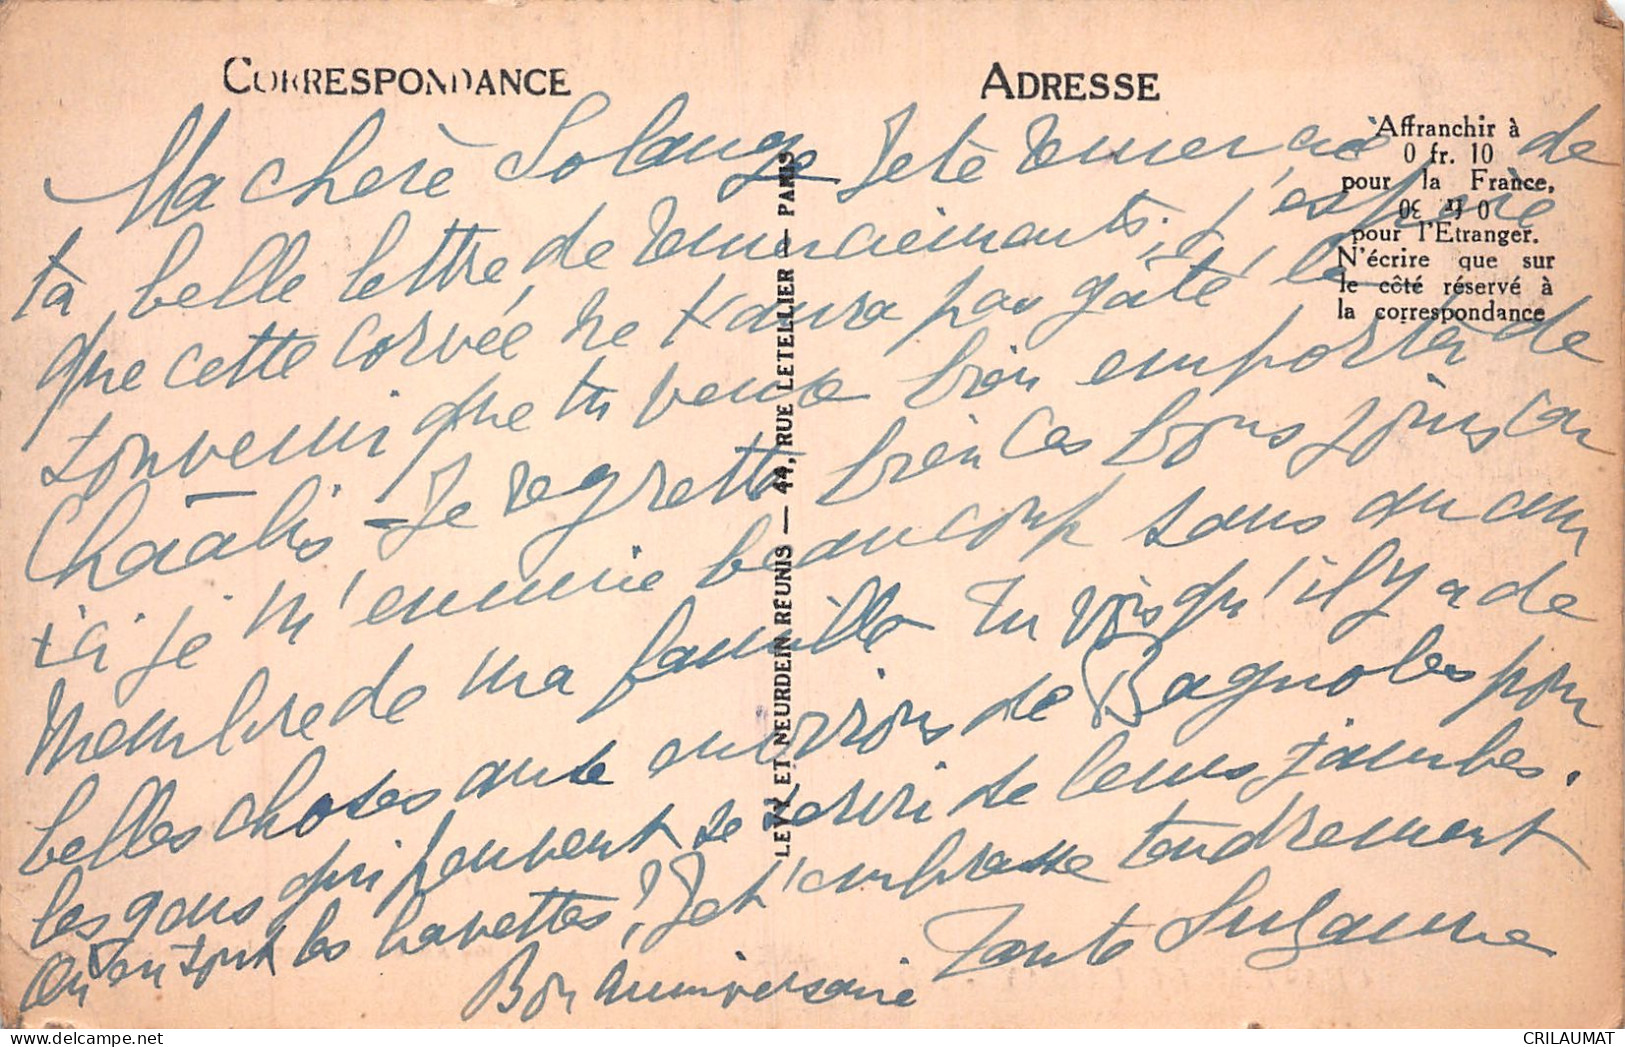 CORRESPONDANCE
ADRESSE
Affranchir à
0 fr. 10
pour la France,
0 fr. 30
pour l'Etranger.
N'écrire que sur
le côté réservé à
la correspondance
LEVY ET NEURDEIN REUNIS — 44, RUE LETELLIER — PARIS
Ma chère Solange Je te remercie de
ta belle lettre de remerciements, j'espère
que cette corvée ne t'aura pas gâté le
souvenir que tu veux bien emporter de
Chaâlis - Je regrette bien ces bons jours car
ici je m'ennuie beaucoup sans aucun
membre de ma famille Tu vois qu'il y a de
belles choses aux environs de Bagnoles pour
les gens qui peuvent se servir de leurs jambes.
Où en sont les navettes? Je t'embrasse tendrement
Tante Suzanne
Bon anniversaire
CRILAUMAT